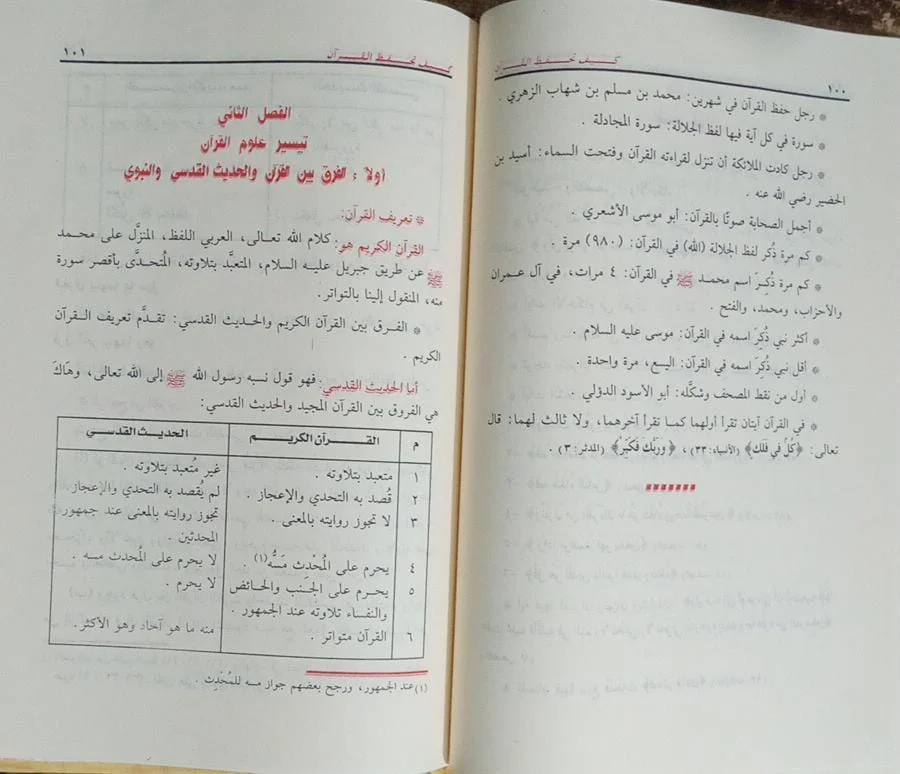 ١٠٠
كيف تحفظ القرآن
* رجل حفظ القرآن في شهرين: محمد بن مسلم بن شهاب الزهري .
* سورة في كل آية فيها لفظ الجلالة: سورة المجادلة .
* رجل كادت الملائكة أن تنزل لقراءته القرآن وفتحت السماء: أسيد بن
الحضير رضي الله عنه .
* أجمل الصحابة صوتًا بالقرآن: أبو موسى الأشعري .
* كم مرة ذُكر لفظ الجلالة (الله) في القرآن: (٩٨٠) مرة .
* كم مرة ذُكِرَ اسم محمد ﷺ في القرآن: ٤ مرات، في آل عمران
والأحزاب، ومحمد، والفتح .
* أكثر نبي ذُكِرَ اسمه في القرآن: موسى عليه السلام .
* أقل نبي ذُكِرَ اسمه في القرآن: اليسع، مرة واحدة .
* أول من نقط المصحف وشكَّله: أبو الأسود الدؤلي .
* في القرآن آيتان تقرأ أولهما كما تقرأ آخرهما، ولا ثالث لهما: قال
تعالى: ﴿كُلٌّ فِي فَلَكٍ﴾ (الأنبياء: ٣٣) ، ﴿وَرَبَّكَ فَكَبِّرْ﴾ (المدثر: ٣) .
كيف تحفظ القرآن
١٠١
الفصل الثاني
تيسير علوم القرآن
أولاً : الفرق بين القرآن والحديث القدسي والنبوي
* تعريف القرآن:
القرآن الكريم هو: كلام الله تعالى، العربي اللفظ، المنزَّل على محمد
ﷺ عن طريق جبريل عليه السلام، المتعبَّد بتلاوته، المُتحدَّى بأقصر سورة
منه، المنقول إلينا بالتواتر.
* الفرق بين القرآن الكريم والحديث القدسي: تقدَّم تعريفت القرآن
الكريم .
أما الحديث القدسي: فهو قول نسبه رسول الله ﷺ إلى الله تعالى، وهَاكَ
هي الفروق بين القرآن المجيد والحديث القدسي:
م القرآن الكريم الحديث القدسي
١ متعبد بتلاوته . غير مُتعبد بتلاوته .
٢ قُصد به التحدي والإعجاز . لم يُقصد به التحدي والإعجاز .
٣ لا تجوز روايته بالمعنى . تجوز روايته بالمعنى عند جمهور
المحدثين .
٤ يحرم على المُحْدِث مَسُّه(١) . لا يحرم على المُحدث مسه .
٥ يحرم على الجُنب والحائض لا يحرم .
والنفساء تلاوته عند الجمهور .
٦ القرآن متواتر . منه ما هو آحاد وهو الأكثر.
(١) عند الجمهور، ورجح بعضهم جواز مسه للمُحْدِث .